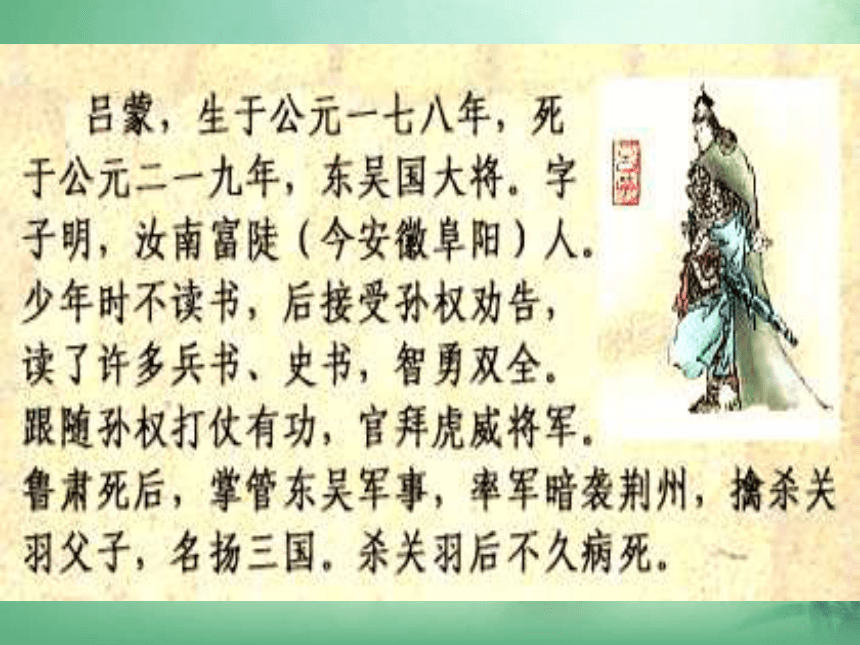 吕蒙，生于公元一七八年，死
于公元二一九年，东吴国大将。字
子明，汝南富陡（今安徽阜阳）人。
少年时不读书，后接受孙权劝告，
读了许多兵书、史书，智勇双全。
跟随孙权打仗有功，官拜虎威将军。
鲁肃死后，掌管东吴军事，率军暗袭荆州，擒杀关
羽父子，名扬三国。杀关羽后不久病死。